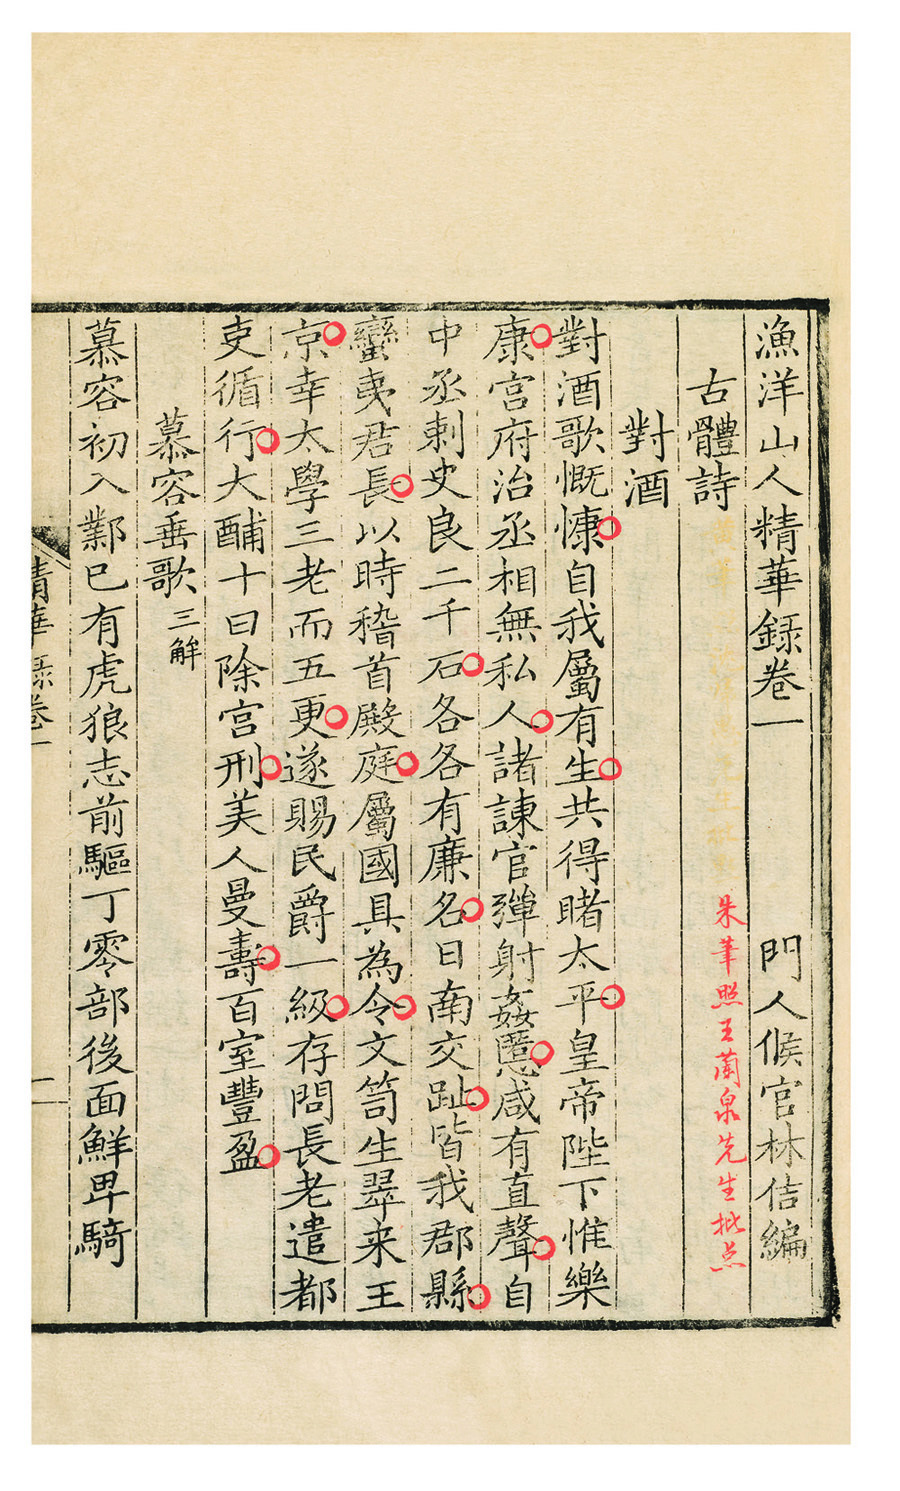 漁洋山人精華録卷一
門人候官林佶編
古體詩
朱筆照王蘭泉先生批点
對酒
對酒歌慨慷自我屬有生共得睹太平皇帝陛下惟樂
康宮府治丞相無私人諸諫官彈射姦慝咸有直聲自
中丞刺史良二千石各各有廉名日南交趾皆我郡縣
蠻夷君長以時稽首殿庭屬國具為令文笥生翠来王
京幸太學三老而五更遂賜民爵一級存問長老遣都
吏循行大酺十日除宮刑美人曼壽百室豐盈
慕容垂歌三解
慕容初入鄴已有虎狼志前驅丁零部後面鮮卑騎
精華録卷一
一